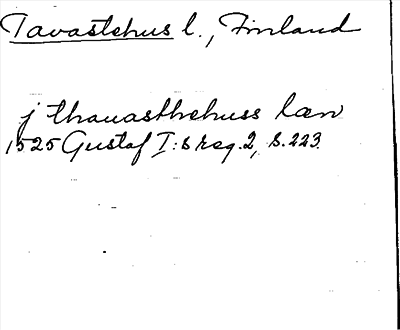 Tavastehus l., Finland
j thauasthehuss læn
1525 Gustaf I:s reg. 2, s. 223.